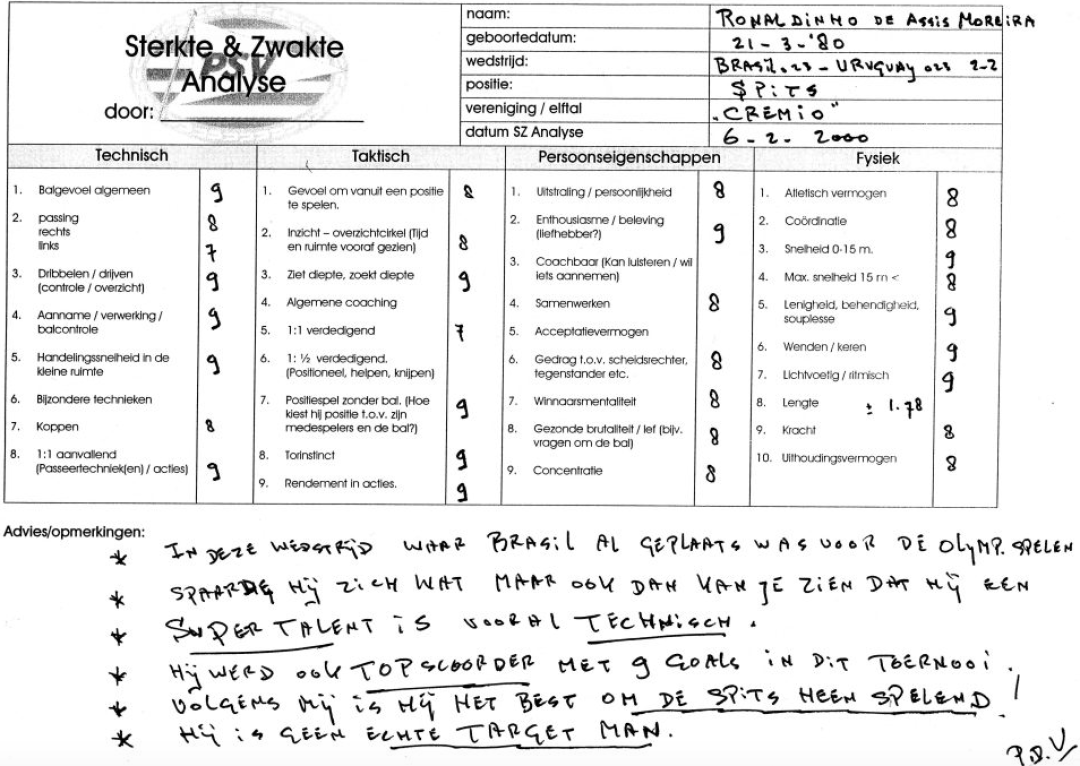 Sterkte & Zwakte
PSV
Analyse
door:
naam: RONALDINHO DE ASSIS MOREIRA
geboortedatum: 21-3-'80
wedstrijd: BRASIL o23 - URUGUAY o23 2-2
positie: SPITS
vereniging / elftal „CREMIO"
datum SZ Analyse 6-2-2000
Technisch
1. Balgevoel algemeen 9
2. passing
rechts 8
links 7
3. Dribbelen / drijven 9
(controle / overzicht)
4. Aanname / verwerking / 9
balcontrole
5. Handelingssnelheid in de 9
kleine ruimte
6. Bijzondere technieken
7. Koppen 8
8. 1:1 aanvallend
(Passeertechniek(en) / acties) 9
Taktisch
1. Gevoel om vanuit een positie 8
te spelen.
2. Inzicht – overzichtcirkel (Tijd
en ruimte vooraf gezien) 8
3. Ziet diepte, zoekt diepte 9
4. Algemene coaching
5. 1:1 verdedigend 7
6. 1: ½ verdedigend.
(Positioneel, helpen, knijpen)
7. Positiespel zonder bal. (Hoe
kiest hij positie t.o.v. zijn 9
medespelers en de bal?)
8. Torinstinct 9
9. Rendement in acties. 9
Persoonseigenschappen
1. Uitstraling / persoonlijkheid 8
2. Enthousiasme / beleving
(liefhebber?) 9
3. Coachbaar (Kan luisteren / wil
iets aannemen)
4. Samenwerken 8
5. Acceptatievermogen
6. Gedrag t.o.v. scheidsrechter, 8
tegenstander etc.
7. Winnaarsmentaliteit 8
8. Gezonde brutaliteit / lef (bijv. 8
vragen om de bal)
9. Concentratie 8
Fysiek
1. Atletisch vermogen 8
2. Coördinatie 8
3. Snelheid 0-15 m. 9
4. Max. snelheid 15 m < 8
5. Lenigheid, behendigheid, 9
souplesse
6. Wenden / keren 9
7. Lichtvoetig / ritmisch 9
8. Lengte ± 1.78
9. Kracht 8
10. Uithoudingsvermogen 8
Advies/opmerkingen:
* IN DEZE WEDSTRIJD WAAR BRASIL AL GEPLAATS WAS VOOR DE OLYMP. SPELEN
* SPAARDE HIJ ZICH WAT MAAR OOK DAN KAN JE ZIEN DAT HIJ EEN
* SUPER TALENT IS VOORAL TECHNISCH.
* HIJ WERD OOK TOPSCOORDER MET 9 GOALS IN DIT TOERNOOI.
* VOLGENS MIJ IS HIJ HET BEST OM DE SPITS HEEN SPELEND!
* HIJ IS GEEN ECHTE TARGET MAN.
P.D.V